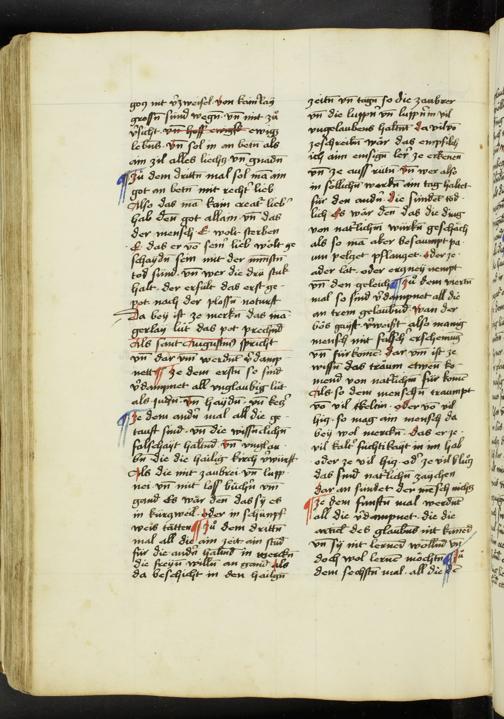 got nit v̄zweifel von kainr̄lay
grossn̄ sünd wegn̄ vn̄ mit zů
v̄sicht vn̄ hoff ewigs ewigs
lebns vn̄ sol in an betn̄ als
am zil alles liechtz vn̄ gnadn̄
Zu dem drittn̄ mal sol mā ain
got an betn̄ mit recht̄ lieb
Also das mā kain creat̄ lieb̄
hab den̄ got allain vn̄ das
der mensch E wolt sterben
E das er vō sein̄ lieb wolt ge
schaydn̄ sein mit der minstn̄
tod sünd vn̄ wer die drü stuk
halt der erfült das erst ge
pot nach der gloss̄n naturft
Da bey ist ze merkn̄ das mā
gerlay lüt das pot prechnd
Als sant Augustinus spricht
vn̄ dar vm̄ werdnt v̄damp
nett Ze dem erstn̄ so sind
v̄dampnet all vnglaubig lüt
als judn̄ vn̄ haydn̄ vn̄ ketz̄
Ze dem andn̄ mal all die ge
tauft sind vn̄ die wissnlichn̄
falschayt haltnd vn̄ vnglau
bn̄ die die hailig kirch v̄wirft
Als die mit zaubrei vn̄ lupp
nei vn̄ mit loss büchn̄ vm̄
gand Es wär den̄ das sy es
in kurtzweil oder in schimpf
weis tättn̄ Zu dem drittn̄
mal all die ain zeit ain stüd
für die andn̄ haltnd in werckn̄
die freyn̄ willn̄ an gand Als
da beschicht in den hailgn̄
zeitn̄ vn̄ tagn̄ so die zaubrer
vn̄ die luppn̄ vn̄ luppnin̄ vil
vnglaubens haltnt da vō ze
schreibn̄ wär das empfilh
ich aim ensign̄ ler̄ ze erkenen
vn̄ ze auss rutn̄ vn̄ wer also
in sölichn̄ werkn̄ ain tag haltet
für den andn̄ die sündet töd
lich Es wär den̄ das die ding
von natlichn̄ würkn̄ geschäch
als so mā aker besampt pa
um pelget pflantzet oder ze
ader lat oder ertzney nempt
vn̄ den gleich Zu dem viertn̄
mal so sind v̄dampnet all die
an trem gelaubnd wan der
bös gaist v̄wiist also manig
mensch mit falsch̄ erscheinung
vn̄ fürkome dar vm̄ ist ze
wissn̄ das träum etwen ko
mend von natlichn̄ für kome
Als so dem menschn̄ träumpt
vō vil kelin oder vō vil
hitz so mag ain mensch da
bey wol merckn̄ das er ze
vil kalt̄ füchtikayt in im hab
oder ze vil hitz od̄ ze vil blütz
das sind natlichn̄ zaychen
dar an sündet der mēsch nichts
Ze dem fünftn̄ mal werdnt
all die v̄dampnet die die
articl des glaubns nit künend
vn̄ sy nit lernend wellnd vn̄
doch wol lernen möchtn̄ Zu
dem sechstn̄ mal all die de